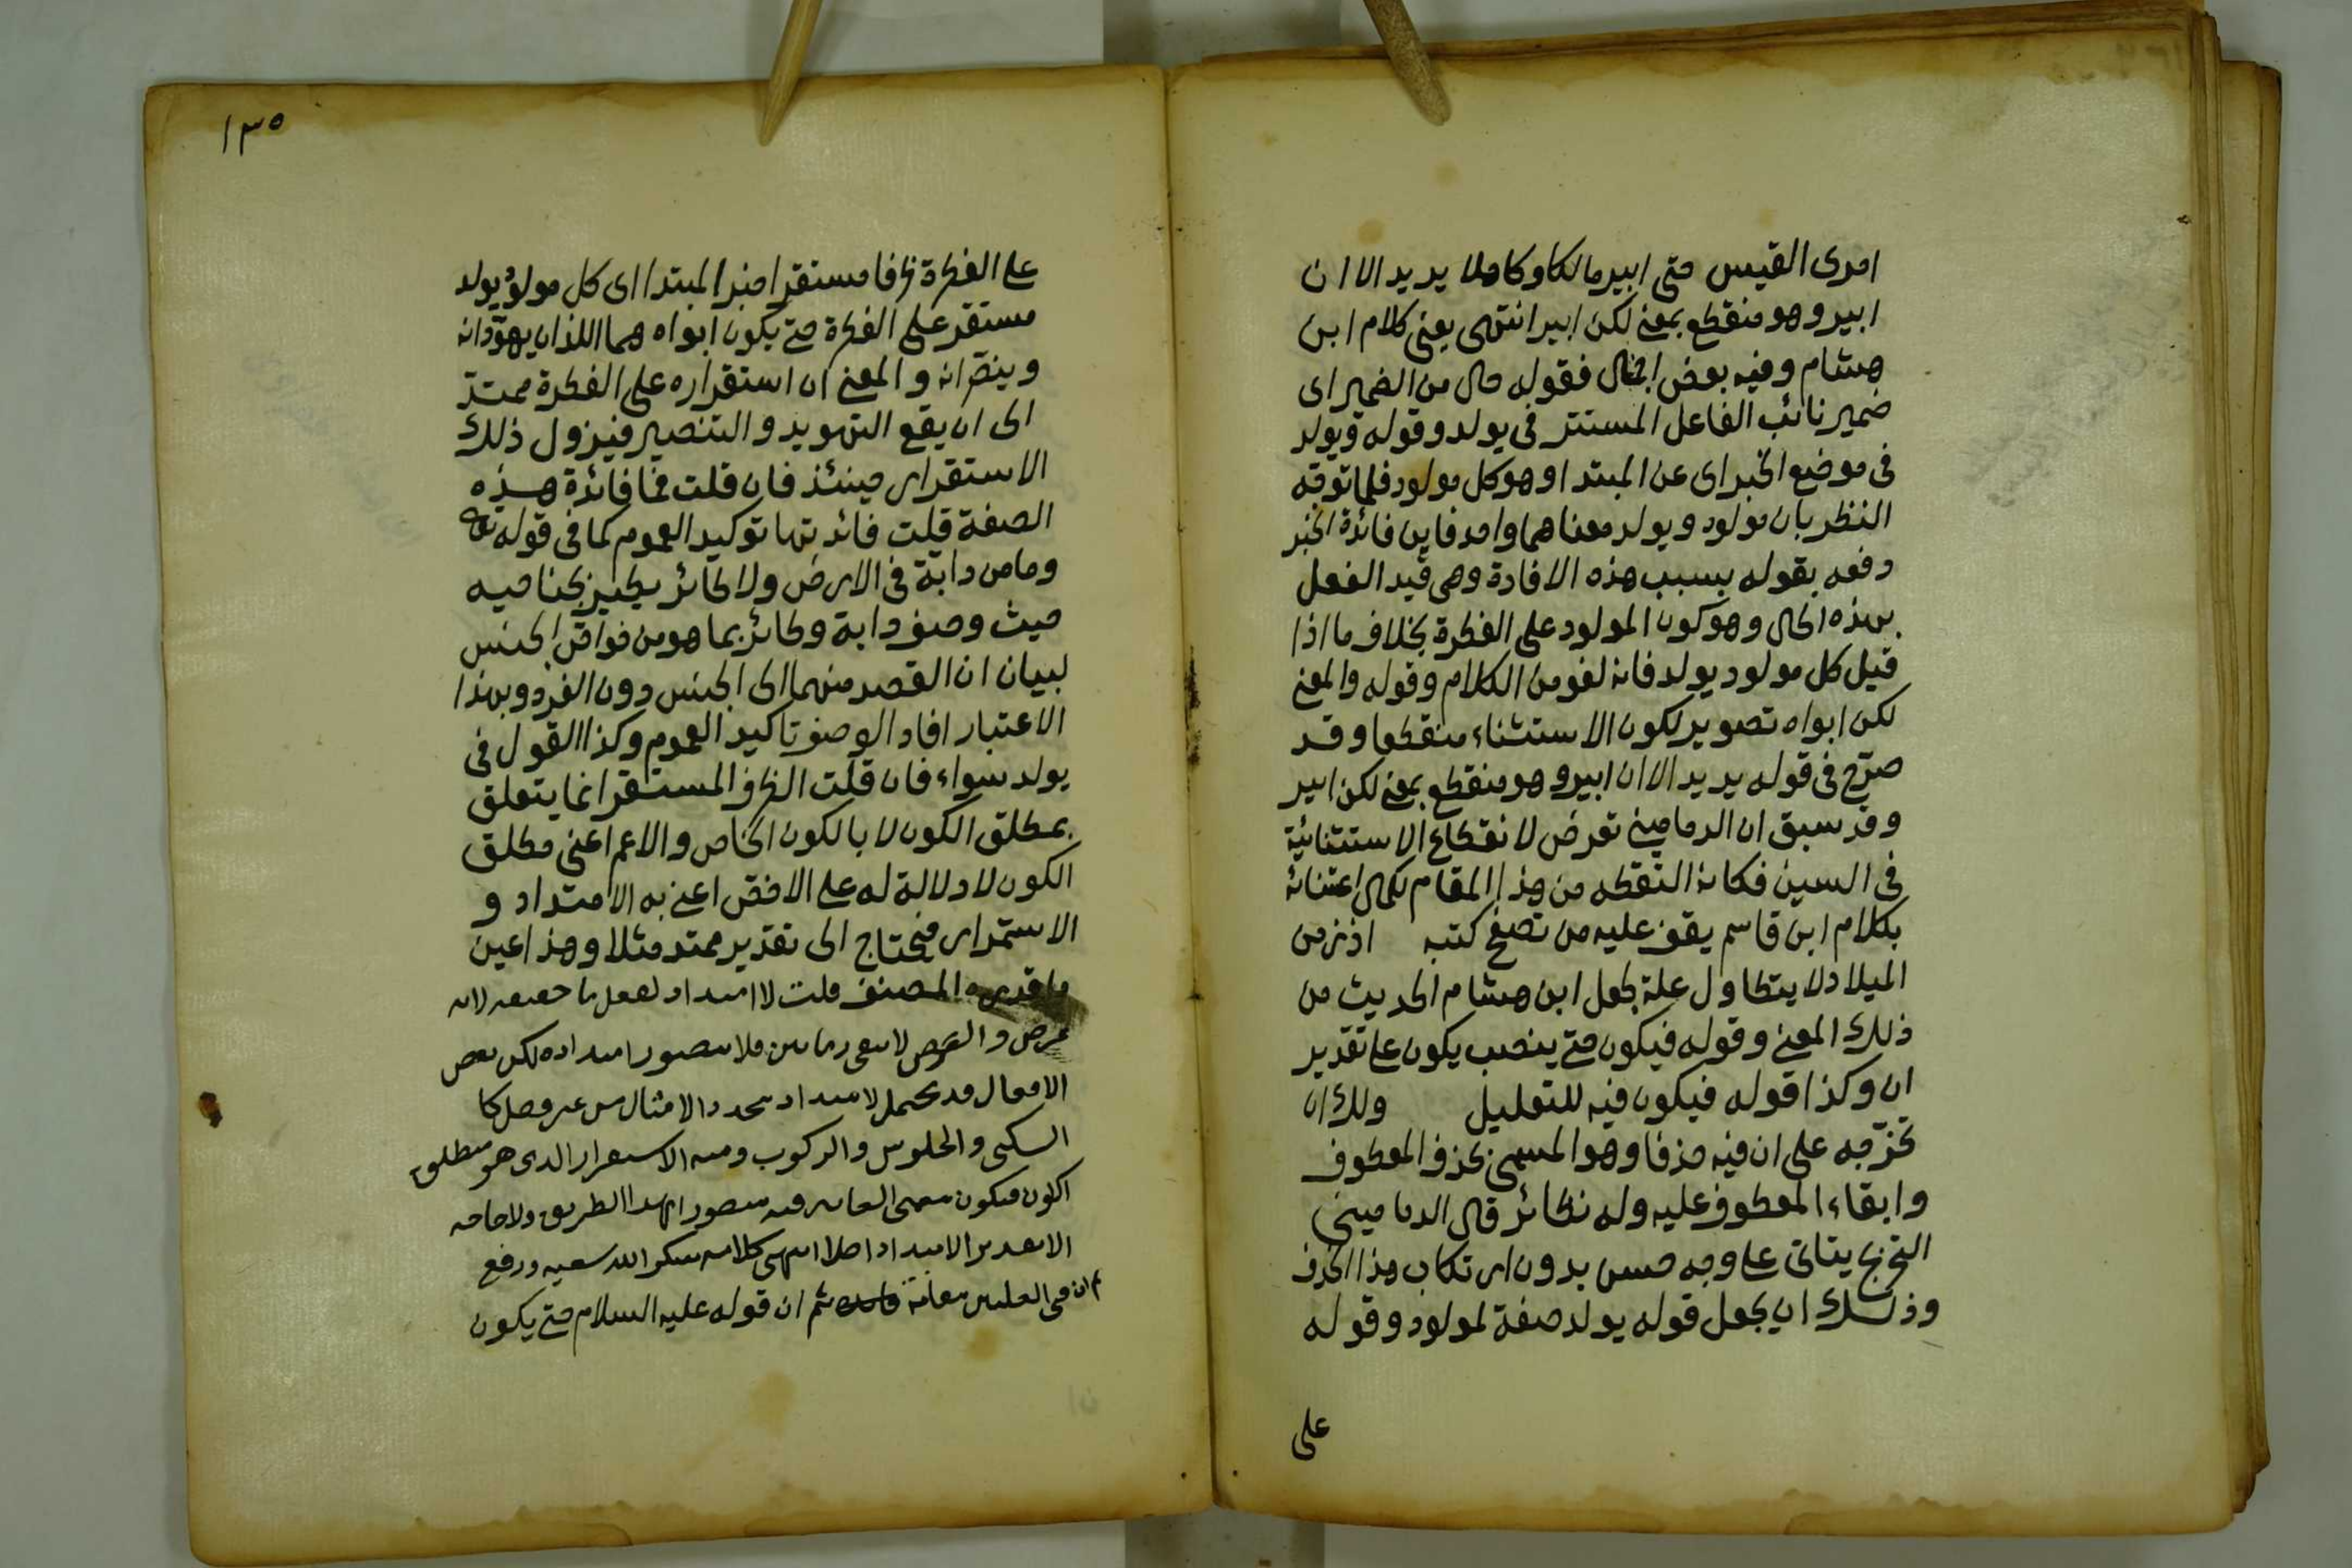 امرئ القيس حتى ابير مالكا وكاهلا يريد الا ان
ابير وهو منقطع بمعنى لكن ابير انتهى يعنى كلام ابن
هشام وفيه بعض فقوله حال من الضمير اى
ضمير نائب الفاعل المستتر فى يولد وقوله ويولد
فى موضع الخبر اى عن المبتدا وهو كل مولود فلما توجّه
النظر بان مولود ويولد معناهما واحد فاين فائدة الخبر
دفعه بقوله بسبب هذه الافادة وهى قيد الفعل
بهذه الحال وهو كون المولود على الفطرة بخلاف ما اذا
قيل كل مولود يولد فانه لغو من الكلام وقوله والمعنى
لكن ابواه تصوير لكون الاستثناء منقطعا وقد
صرّح فى قوله يريد الا ان ابير وهو منقطع بمعنى لكن ابير
وقد سبق ان الدمامينى تعرض لانقطاع الاستثنائية
فى السين فكانه التقطه من هذا المقام لكمال اعتنائه
بكلام ابن قاسم يقف عليه من تصفح كتبه اذ زمن
الميلاد لا يتطاول علة لجعل ابن هشام الحديث من
ذلك المعنى وقوله فيكون حتى ينصب يكون على تقدير
ان وكذا قوله فيكون فيه للتعليل ولك ان
تخرّجه على ان فيه حذفا وهو المسمى بحذف المعطوف
وابقاء المعطوف عليه وله نظائر قال الدمامينى
التخريج يتاتى على وجه حسن بدون ارتكاب هذا الحذف
وذلك ان يجعل قوله يولد صفة لمولود وقوله
على
١٣٥
على الفطرة ظرفا مستقرا خبر المبتدا اى كل مولود يولد
مستقر على الفطرة حتى يكون ابواه هما اللذان يهوّدانه
وينصّرانه والمعنى ان استقراره على الفطرة ممتدّ
الى ان يقع التهويد والتنصير فيزول ذلك
الاستقرار حينئذ فان قلت فما فائدة هذه
الصفة قلت فائدتها توكيد العموم كما فى قوله تعالى
وما من دابة فى الارض ولا طائر يطير بجناحيه
حيث وصف دابة وطائر بما هو من خواص الجنس
لبيان ان القصد منهما الى الجنس دون الفرد وبهذا
الاعتبار افاد الوصف تاكيد العموم وكذا القول فى
يولد سواء فان قلت الظرف المستقر انما يتعلق
بمطلق الكون لا بالكون الخاص والاعم اعنى مطلق
الكون لا دلالة له على الاخص اعنى به الامتداد و
الاستمرار فيحتاج الى تقدير ممتد مثلا وهذا عين
ما قدره المصنف قلت لا امتداد لفعل ما حقيقة لانه
عرض والعرض لا يبقى زمانين فلا يتصور امتداده لكن بعض
الافعال قد يحتمل الامتداد بتجدد الامثال من غير فصل كا
السكنى والجلوس والركوب ومنه الاستقرار الذى هو مطلق
الكون فيكون معنى الغاية فيه متصورا بهذا الطريق ولا حاجة
الا تقدير الامتداد اصلا انتهى كلامه شكر الله سعيه ورفع
فى العليين مقامه ثم ان قوله عليه السلام حتى يكون